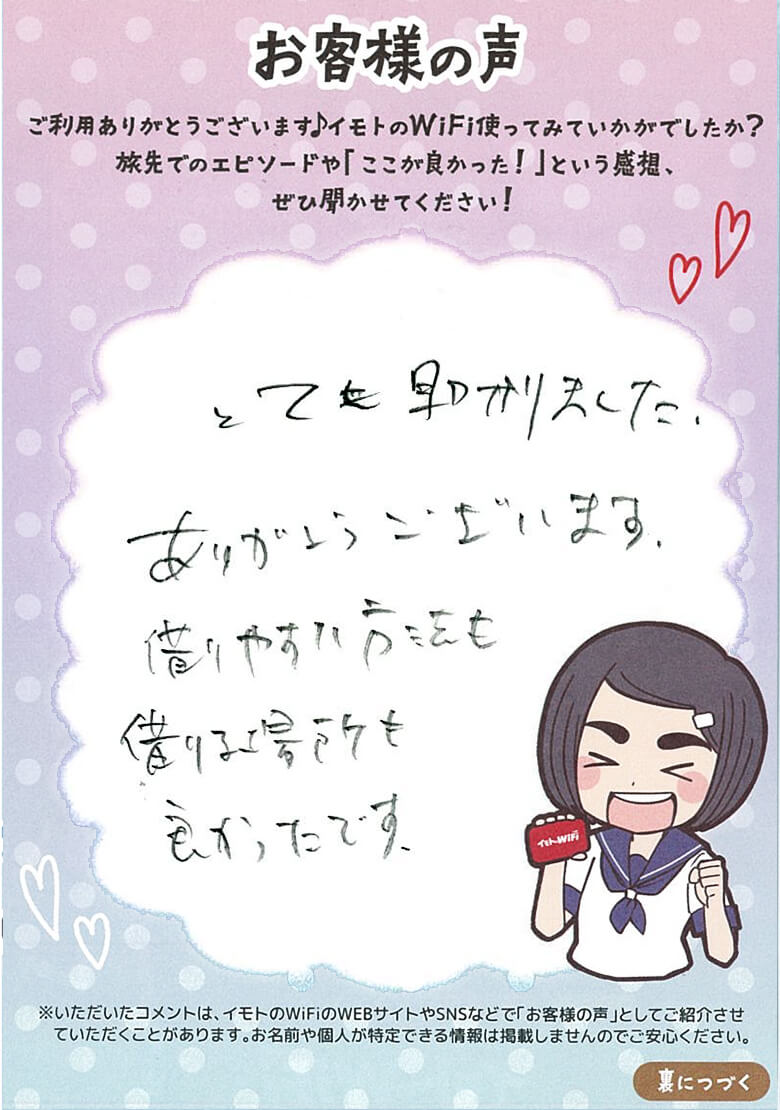 お客様の声
ご利用ありがとうございます♪イモトのWiFi使ってみていかがでしたか?
旅先でのエピソードや「ここが良かった!」という感想、
ぜひ聞かせてください!
とても助かりました.
ありがとうございます.
借りやすい方法も
借りる場所も
良かったです.
イモトのWiFi
※いただいたコメントは、イモトのWiFiのWEBサイトやSNSなどで「お客様の声」としてご紹介させ
ていただくことがあります。お名前や個人が特定できる情報は掲載しませんのでご安心ください。
裏につづく